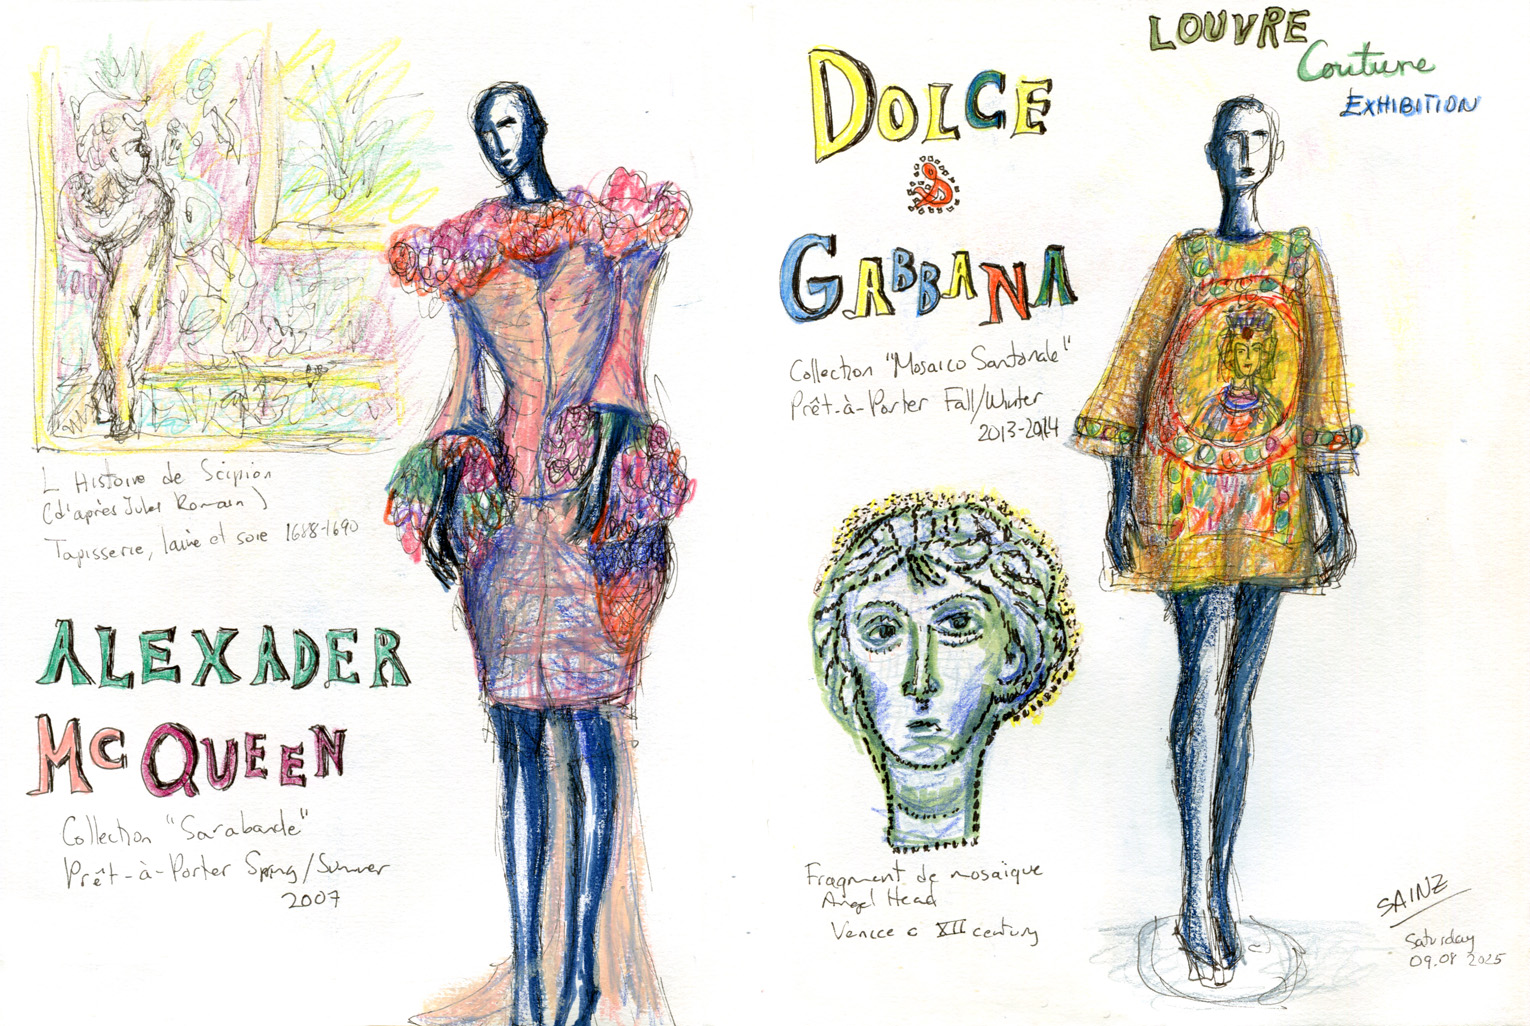 L Histoire de Scipion
(d'après Jules Romain)
Tapisserie, laine et soie 1688-1690
ALEXADER
McQUEEN
Collection "Sarabande"
Prêt-à-Porter Spring/Summer
2007
LOUVRE
Couture
EXHIBITION
DOLCE
&
GABBANA
Collection "Mosaico Santonale"
Prêt-à-Porter Fall/Winter
2013-2014
Fragment de mosaïque
Angel Head
Venice c XII century
SAINZ
Saturday
09.08 2025